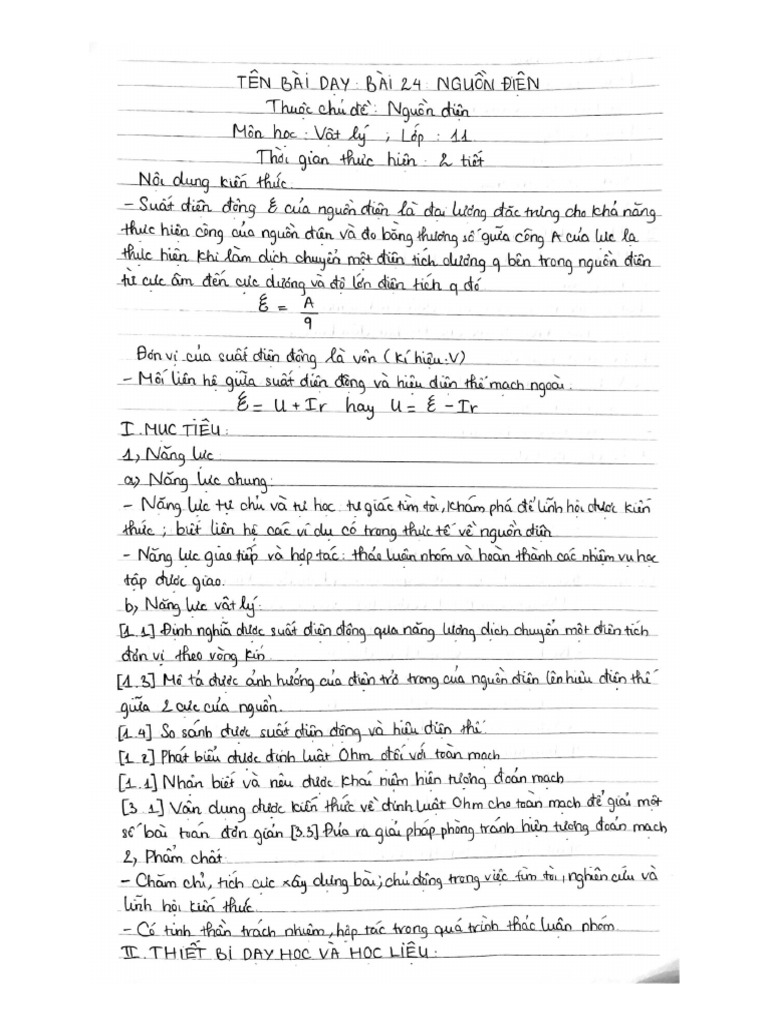 TÊN BÀI DẠY: BÀI 24: NGUỒN ĐIỆN
Thuộc chủ đề: Nguồn điện
Môn học: Vật lý ; Lớp: 11
Thời gian thực hiện: 2 tiết
Nội dung kiến thức.
- Suất điện động ξ của nguồn điện là đại lượng đặc trưng cho khả năng
thực hiện công của nguồn điện và đo bằng thương số giữa công A của lực lạ
thực hiện khi làm dịch chuyển một điện tích dương q bên trong nguồn điện
từ cực âm đến cực dương và độ lớn điện tích q đó
ξ = A
q
Đơn vị của suất điện động là vôn (kí hiệu: V)
- Mối liên hệ giữa suất điện động và hiệu điện thế mạch ngoài.
ξ = U + Ir hay U = ξ - Ir
I. MỤC TIÊU:
1, Năng lực:
a) Năng lực chung:
- Năng lực tự chủ và tự học tự giác tìm tòi, khám phá để lĩnh hội được kiến
thức; biết liên hệ các ví dụ có trong thực tế về nguồn điện
- Năng lực giao tiếp và hợp tác: thảo luận nhóm và hoàn thành các nhiệm vụ học
tập được giao.
b, Năng lực vật lý:
[1.1] Định nghĩa được suất điện động qua năng lượng dịch chuyển một điện tích
đơn vị theo vòng kín.
[1.3] Mô tả được ảnh hưởng của điện trở trong của nguồn điện lên hiệu điện thế
giữa 2 cực của nguồn.
[1.4] So sánh được suất điện động và hiệu điện thế
[1.2] Phát biểu được định luật Ohm đối với toàn mạch
[1.1] Nhận biết và nêu được khái niệm hiện tượng đoản mạch
[3.1] Vận dụng được kiến thức về định luật Ohm cho toàn mạch để giải một
số bài toán đơn giản [3.5] Đưa ra giải pháp phòng tránh hiện tượng đoản mạch
2, Phẩm chất:
- Chăm chỉ, tích cực xây dựng bài; chủ động trong việc tìm tòi, nghiên cứu và
lĩnh hội kiến thức.
- Có tinh thần trách nhiệm, hợp tác trong quá trình thảo luận nhóm.
II. THIẾT BỊ DẠY HỌC VÀ HỌC LIỆU: